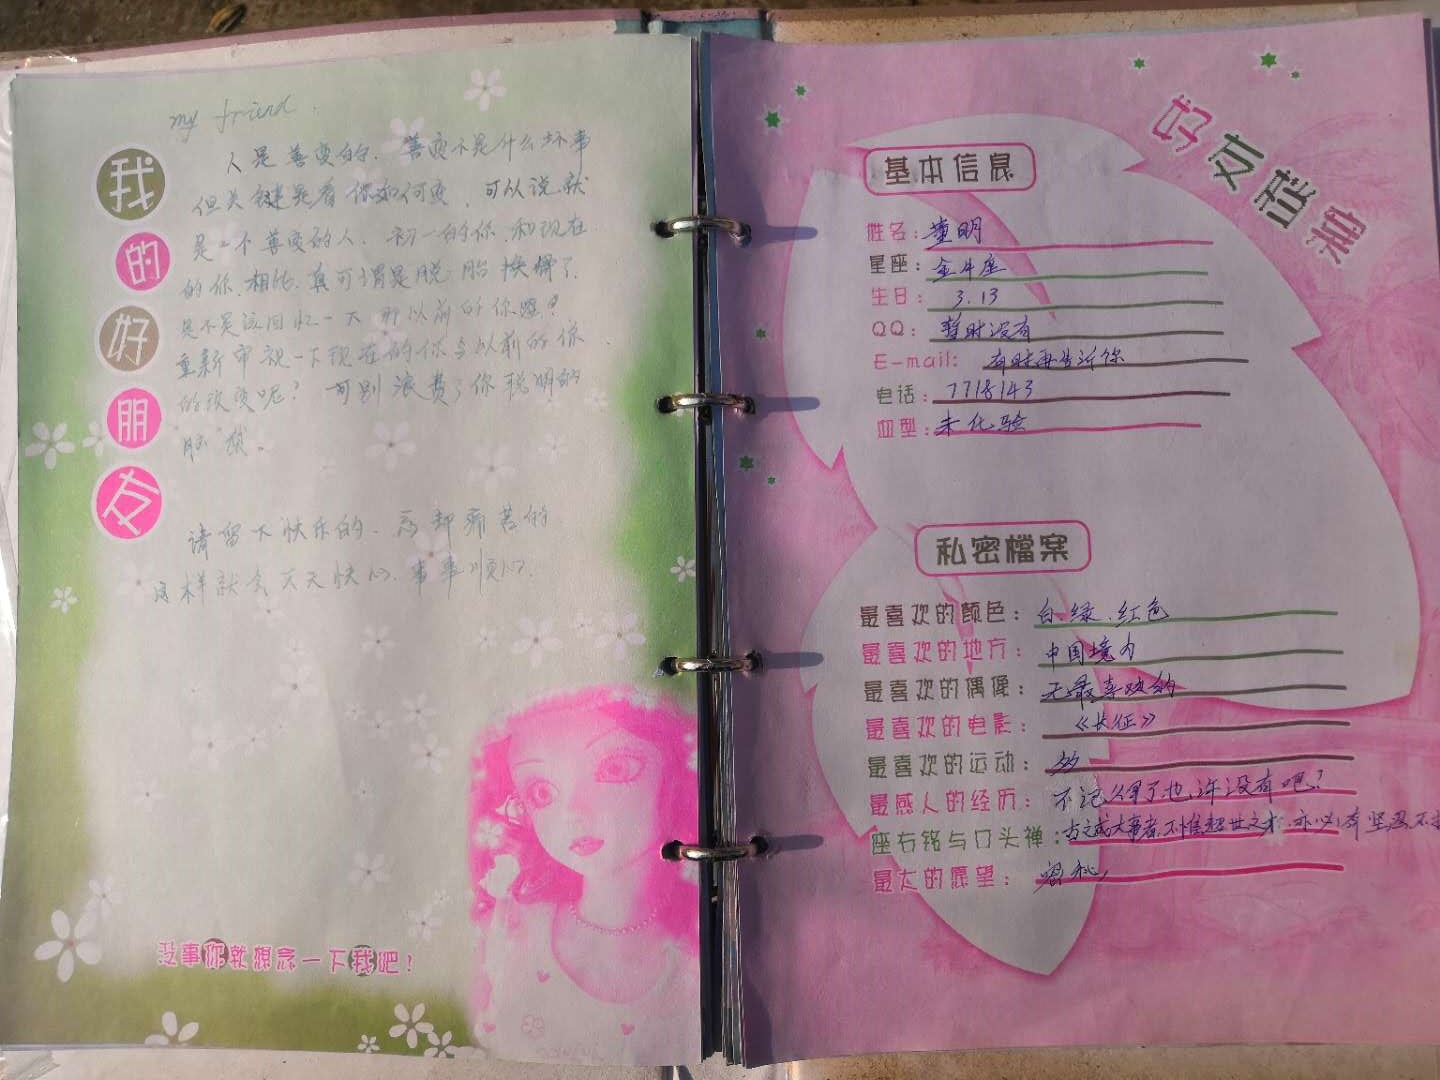 my friend.
我的好朋友
人是善变的.善变不是什么坏事
但关键是看你如何变,可以说就
是一个善变的人.初一的你.和现在
的你.相比.真可谓是脱胎换骨了.
是不是该回忆一下那以前的你呢?
重新审视一下现在的你与以前的你.
的改变呢?可别浪费了你聪明的
脑袋。
请留下快乐的.忘却痛苦的
这样就会天天快心.事事顺心.
没事你就想念一下我吧!
好友档案
基本信息
姓名:董明
星座:金牛座
生日:3.13
QQ:暂时没有
E-mail:有时再告诉你
电话:7718143
血型:未化验
私密檔案
最喜欢的颜色:白.绿.红色
最喜欢的地方:中国境内
最喜欢的偶像:无最喜欢的
最喜欢的电影:《长征》
最喜欢的运动:多
最感人的经历:不记得了也许没有吧?
座右铭与口头禅:古之成大事者,不惟超世之才,亦必有坚忍不
最大的愿望: